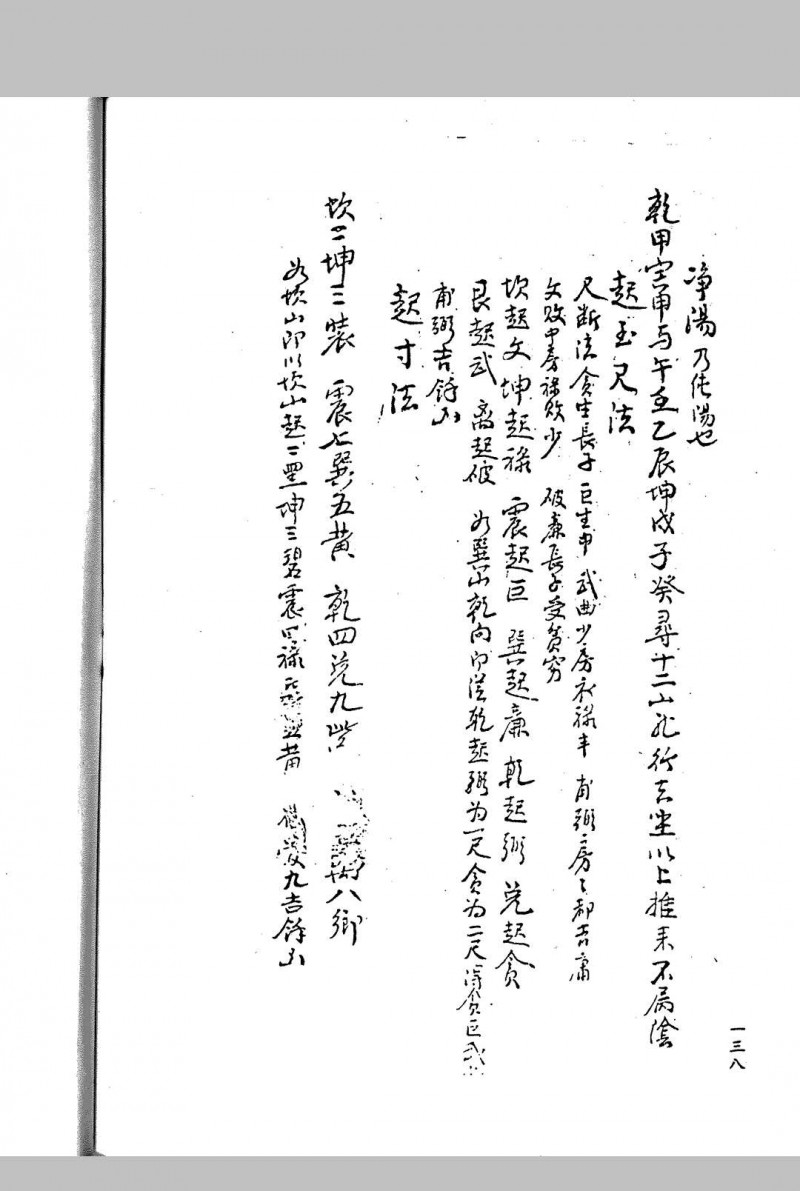 净陽乃純陽也
乾甲 与午壬乙辰坤戌子癸尋十二山 行去 以上推来不属陰
起玉尺法
尺断法貪生長子巨生中武曲少房衣禄丰甫弼房々都吉庸
文败中房禄败少 破廉長子受贫穷
坎起文坤起禄 震起巨 巽起廉 乾起弼 兑起貪
艮起武 离起破 如巽山乾向即従乾起弼为一尺貪为二尺 貪巨武
甫弼吉馀凶
起寸法
坎二坤三 震七巽五黄 乾四兑九 八
如坎山即以坎山起二黑坤三碧震四禄 黄 九吉馀凶
一三八